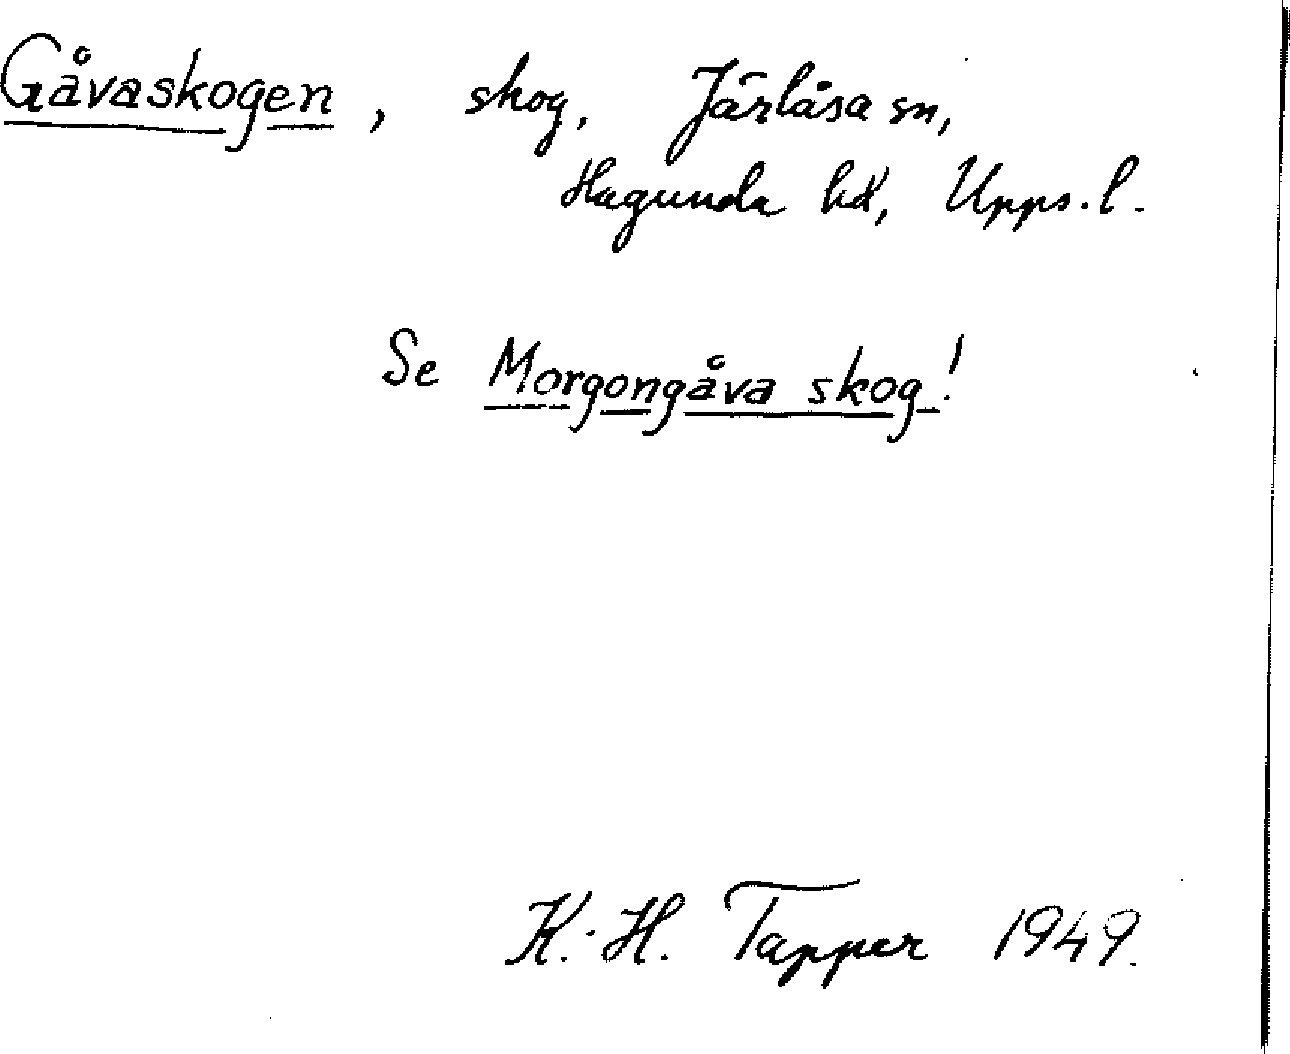 Gåvaskogen, skog, Järlåsa sn,
Hagunda hd, Upps. l.
Se Morgongåva skog!
K.-H. Tapper 1949.